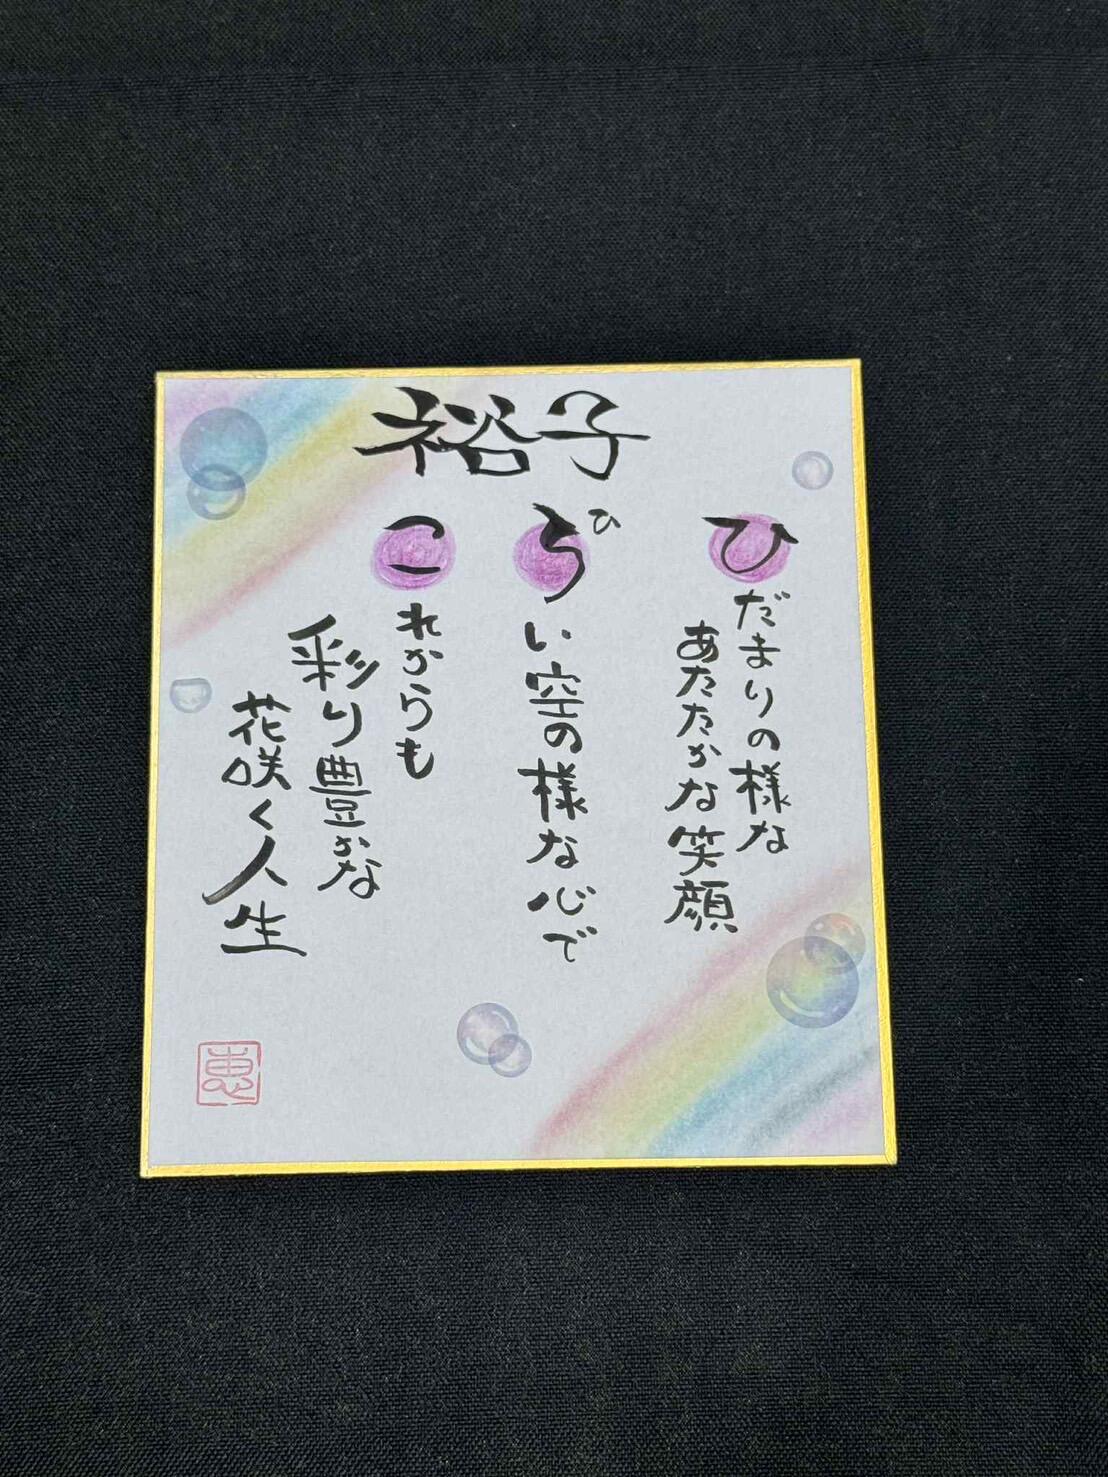 裕子
ひだまりの様な
あたたかな笑顔
ひろい空の様な心で
これからも
彩り豊かな
花咲く人生
恵